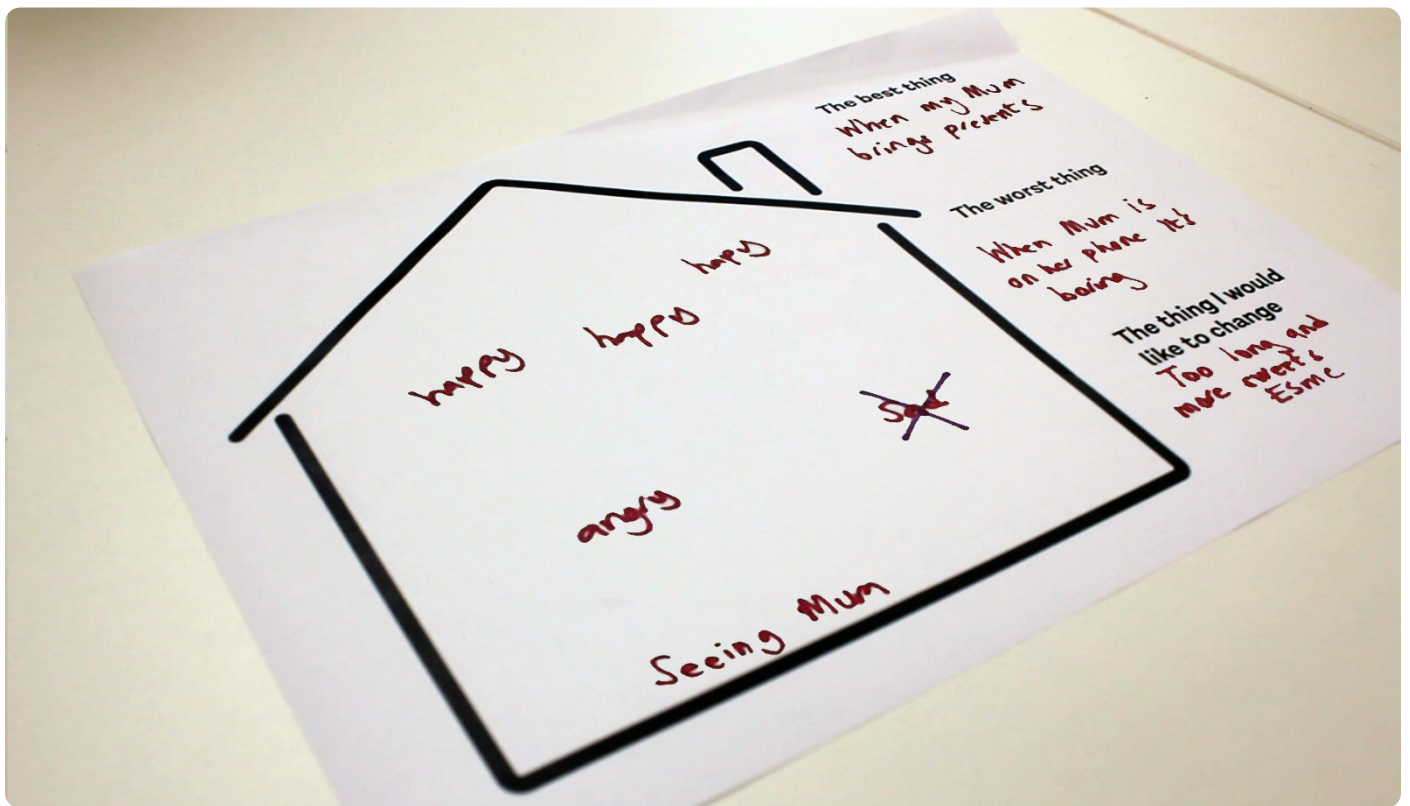 The best thing
When my Mum
brings presents
The worst thing
When Mum is
on her phone it's
boring
The thing I would
like to change
Too long and
more sweets
Esme
hapy
happy
happy
angry
Seeing Mum